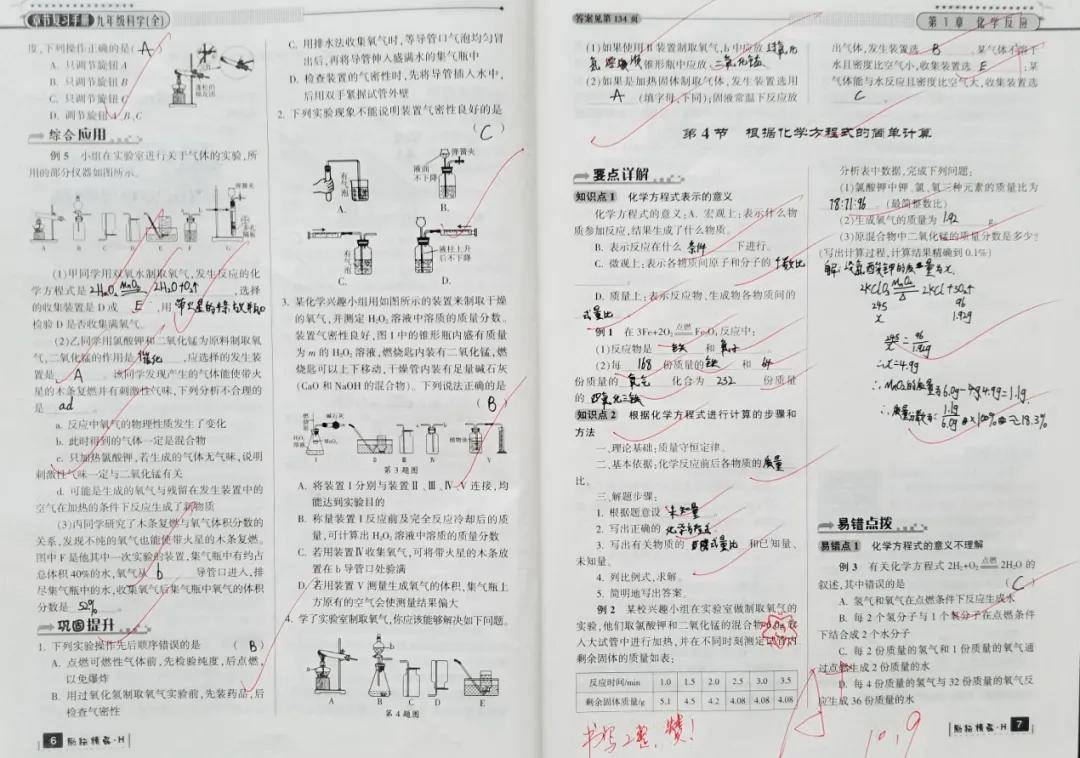 章节复习手册 九年级科学(全)
度,下列操作正确的是( A )
A. 只调节旋钮 A
B. 只调节旋钮 B
C. 只调节旋钮 C
D. 调节旋钮 A、B、C
综合应用
例 5 小组在实验室进行关于气体的实验,所
用的部分仪器如图所示。
弹簧夹
A B C D E F G
(1)甲同学用双氧水制取氧气,发生反应的化
学方程式是 2H₂O₂ MnO₂ 2H₂O+O₂↑ ,选择
的收集装置是 D 或 E ,用
检验 D 是否收集满氧气。
(2)乙同学用氯酸钾和二氧化锰为原料制取氧
气,二氧化锰的作用是 催化 ,应选择的发生装
置是 A 。该同学发现产生的气体能使带火
星的木条复燃并有刺激性气味,下列分析不合理的
是 ad
a. 反应中氧气的物理性质发生了变化
b. 此时得到的气体一定是混合物
c. 只加热氯酸钾,若生成的气体无气味,说明
刺激性气味一定与二氧化锰有关
d. 可能是生成的氧气与残留在发生装置中的
空气在加热的条件下反应生成了新物质
(3)丙同学研究了木条复燃与氧气体积分数的
关系,发现不纯的氧气也能使带火星的木条复燃。
图中 F 是他其中一次实验的装置,集气瓶中有约占
总体积 40%的水,氧气从 b 导管口进入,排
尽集气瓶中的水,收集氧气后集气瓶中氧气的体积
分数是 52%
巩固提升
1. 下列实验操作先后顺序错误的是 ( B )
A. 点燃可燃性气体前,先检验纯度,后点燃,
以免爆炸
B. 用过氧化氢制取氧气实验前,先装药品,后
检查气密性
6 励耘精品·H
C. 用排水法收集氧气时,等导管口气泡均匀冒
出后,再将导管伸入盛满水的集气瓶中
D. 检查装置的气密性时,先将导管插入水中,
后用双手紧握试管外壁
2. 下列实验现象不能说明装置气密性良好的是
( C )
有气泡
A.
弹簧夹
液面
不下降
B.
有气泡
C.
液柱上升
后不下降
D.
3. 某化学兴趣小组用如图所示的装置来制取干燥
的氧气,并测定 H₂O₂ 溶液中溶质的质量分数。
装置气密性良好,图 I 中的锥形瓶内盛有质量
为 m 的 H₂O₂ 溶液,燃烧匙内装有二氧化锰,燃
烧匙可以上下移动,干燥管内装有足量碱石灰
(CaO 和 NaOH 的混合物)。下列说法正确的是
( B )
碱石灰
H₂O₂
溶液
MnO₂
植物油
I Ⅱ Ⅲ Ⅳ Ⅴ
第 3 题图
A. 将装置 I 分别与装置Ⅱ、Ⅲ、Ⅳ、Ⅴ连接,均
能达到实验目的
B. 称量装置 I 反应前及完全反应冷却后的质
量,可计算出 H₂O₂ 溶液中溶质的质量分数
C. 若用装置Ⅳ收集氧气,可将带火星的木条放
置在 b 导管口处验满
D. 若用装置 Ⅴ 测量生成氧气的体积,集气瓶上
方原有的空气会使测量结果偏大
4. 学了实验室制取氧气,你应该能够解决如下问题。
A B C D E
第 4 题图
答案见第 134 页
第 1 章 化学反应
(1)如果使用 B 装置制取氧气,b 中应放 过氧化
氢溶液 ,锥形瓶中应放 二氧化锰
(2)如果是加热固体制取气体,发生装置选用
A (填字母,下同);固液常温下反应放
出气体,发生装置选 B 。某气体不溶于
水且密度比空气小,收集装置选 E ;某
气体能与水反应且密度比空气大,收集装置选
C 。
第 4 节 根据化学方程式的简单计算
要点详解
知识点 1 化学方程式表示的意义
化学方程式的意义:A. 宏观上:表示什么物
质参加反应,结果生成了什么物质。
B. 表示反应在什么 条件 下进行。
C. 微观上:表示各物质间原子和分子的 个数比
D. 质量上:表示反应物、生成物各物质间的
质量比
例 1 在 3Fe+2O₂ 点燃 Fe₃O₄ 反应中:
(1)反应物是 铁 和 氧气
(2)每 168 份质量的 铁 和 64
份质量的 氧气 化合为 232 份质量
的 四氧化三铁
知识点 2 根据化学方程式进行计算的步骤和
方法
一、理论基础:质量守恒定律。
二、基本依据:化学反应前后各物质的 质量
比。
三、解题步骤:
1. 根据题意设 未知量
2. 写出正确的 化学方程式
3. 写出有关物质的 质量比 和已知量、
未知量。
4. 列比例式,求解。
5. 简明地写出答案。
例 2 某校兴趣小组在实验室做制取氧气的
实验,他们取氯酸钾和二氧化锰的混合物 6.0g 放
入大试管中进行加热,并在不同时刻测定试管内
剩余固体的质量如表:
反应时间/min 1.0 1.5 2.0 2.5 3.0 3.5
剩余固体质量/g 5.1 4.5 4.2 4.08 4.08 4.08
书写工整,赞!
分析表中数据,完成下列问题:
(1)氯酸钾中钾、氯、氧三种元素的质量比为
78:71:96 。(最简整数比)
(2)生成氧气的质量为 1.92 g。
(3)原混合物中二氧化锰的质量分数是多少?
(写出计算过程,计算结果精确到 0.1%)
解:设氯酸钾的质量为x
2KClO₃ MnO₂ △ 2KCl+3O₂↑
245 96
x 1.92g
245/x = 96/1.92g
∴x=4.9g
∴MnO₂的质量为6.0g-4.9g=1.1g
∴质量分数为: 1.1g/6.0g ×100% ≈18.3%
易错点拨
易错点 1 化学方程式的意义不理解
例 3 有关化学方程式 2H₂+O₂ 点燃 2H₂O 的
叙述,其中错误的是 ( C )
A. 氢气和氧气在点燃条件下反应生成水
B. 每 2 个氢分子与 1 个氧分子在点燃条件
下结合成 2 个水分子
C. 每 2 份质量的氢气和 1 份质量的氧气通
过点燃生成 2 份质量的水
D. 每 4 份质量的氢气与 32 份质量的氧气反
应生成 36 份质量的水
A
10.9
励耘精品·H 7